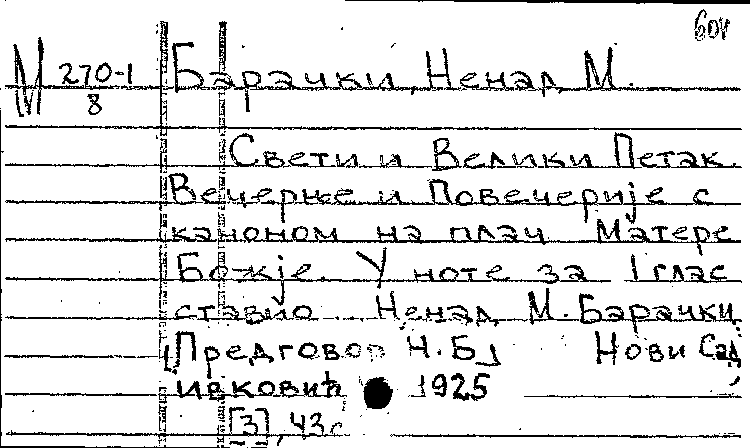 М 270-1/8
Барачки, Ненад М.
Свети и Велики Петак.
Вечерње и Повечерије с
каноном на плач Матере
Божје. У ноте за 1 глас
ставио Ненад М. Барачки
[Предговор Н. Б.] Нови Сад,
Ивковић 1925
[3], 43 с